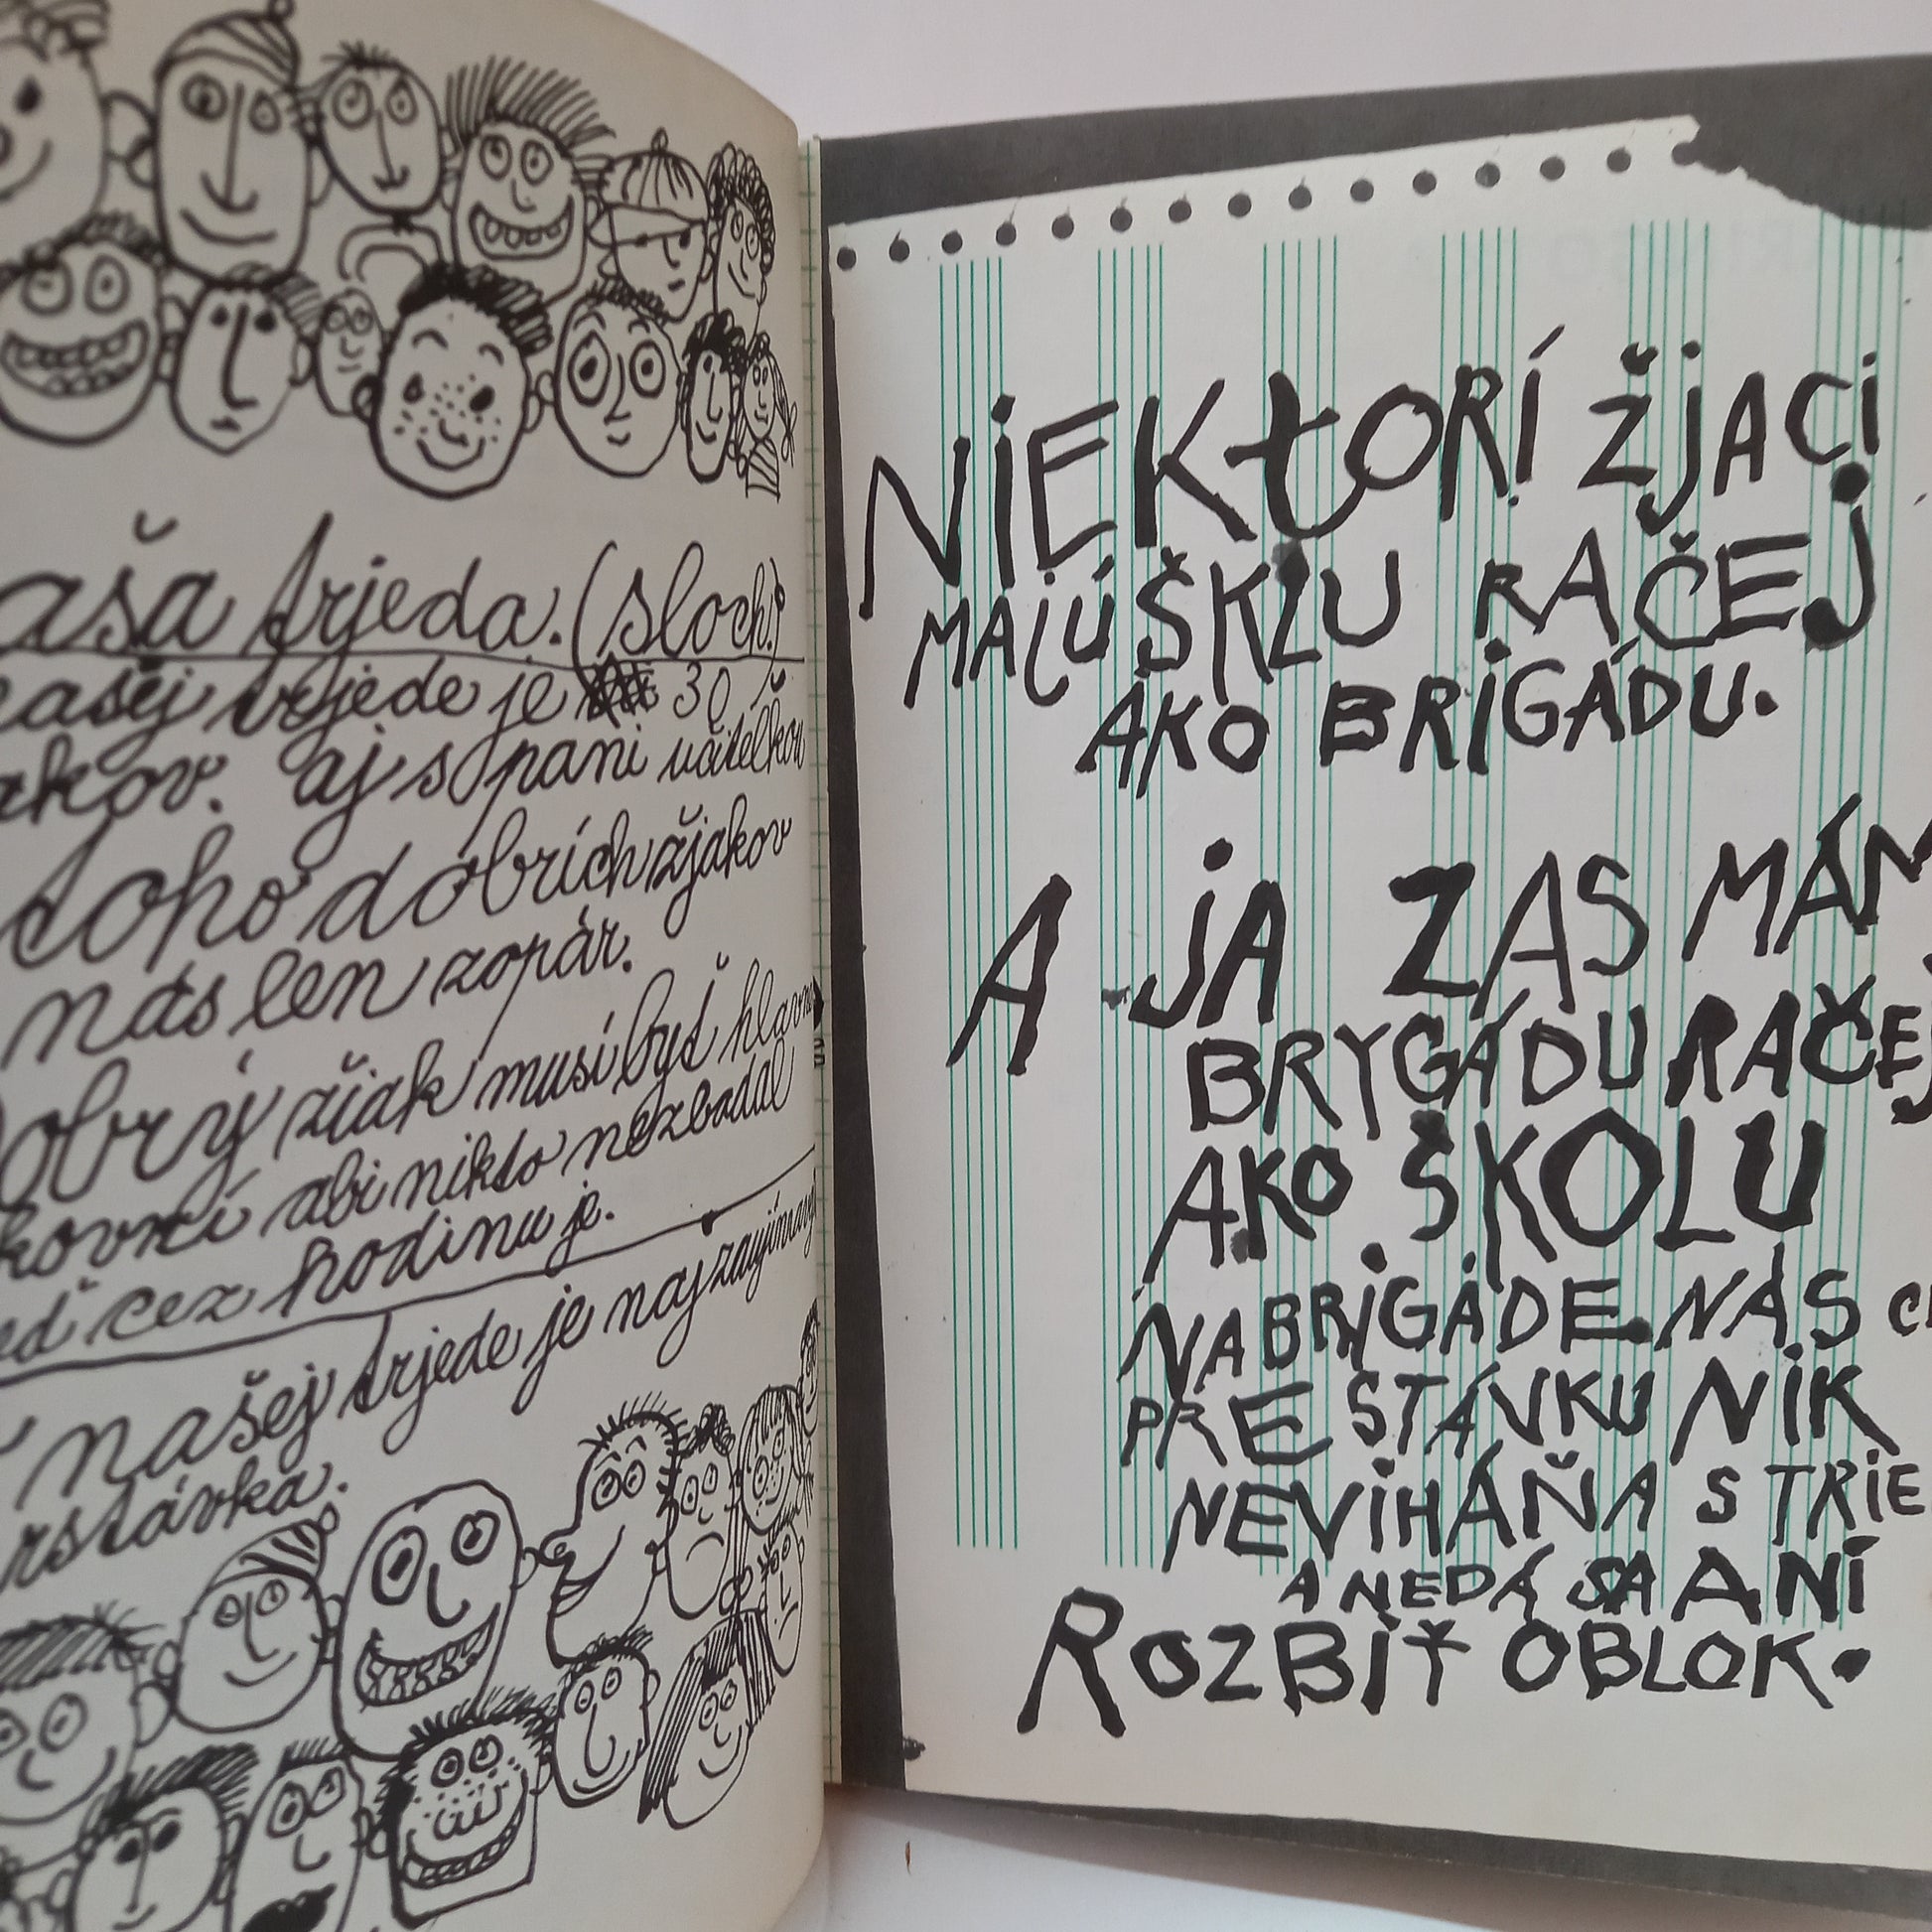 aša trjeda. (sloch.)
našej trjede je 30
akov. aj s pani učitelkou
toho dobrích žjakov
nás len zopár.
obrý žiak musí byť hlavne
kovní abi nikto nezbadal
eď cez hodinu je.
našej trjede je najzaujímav
rstávka.
NiEKtORÍ ŽjACi
MAJÚ ŠKLU RAČEJ
AKO BRiGÁDU.
A jA ZAS MÁM
BRYGÁDU RAČEJ
AKO ŠKOLU
NA BRiGÁDE NÁS
PRESTÁVKU NiK
NEViHÁŇA S TRiE
A NEDÁ SA ANÍ
ROZBiŤ OBLOK.